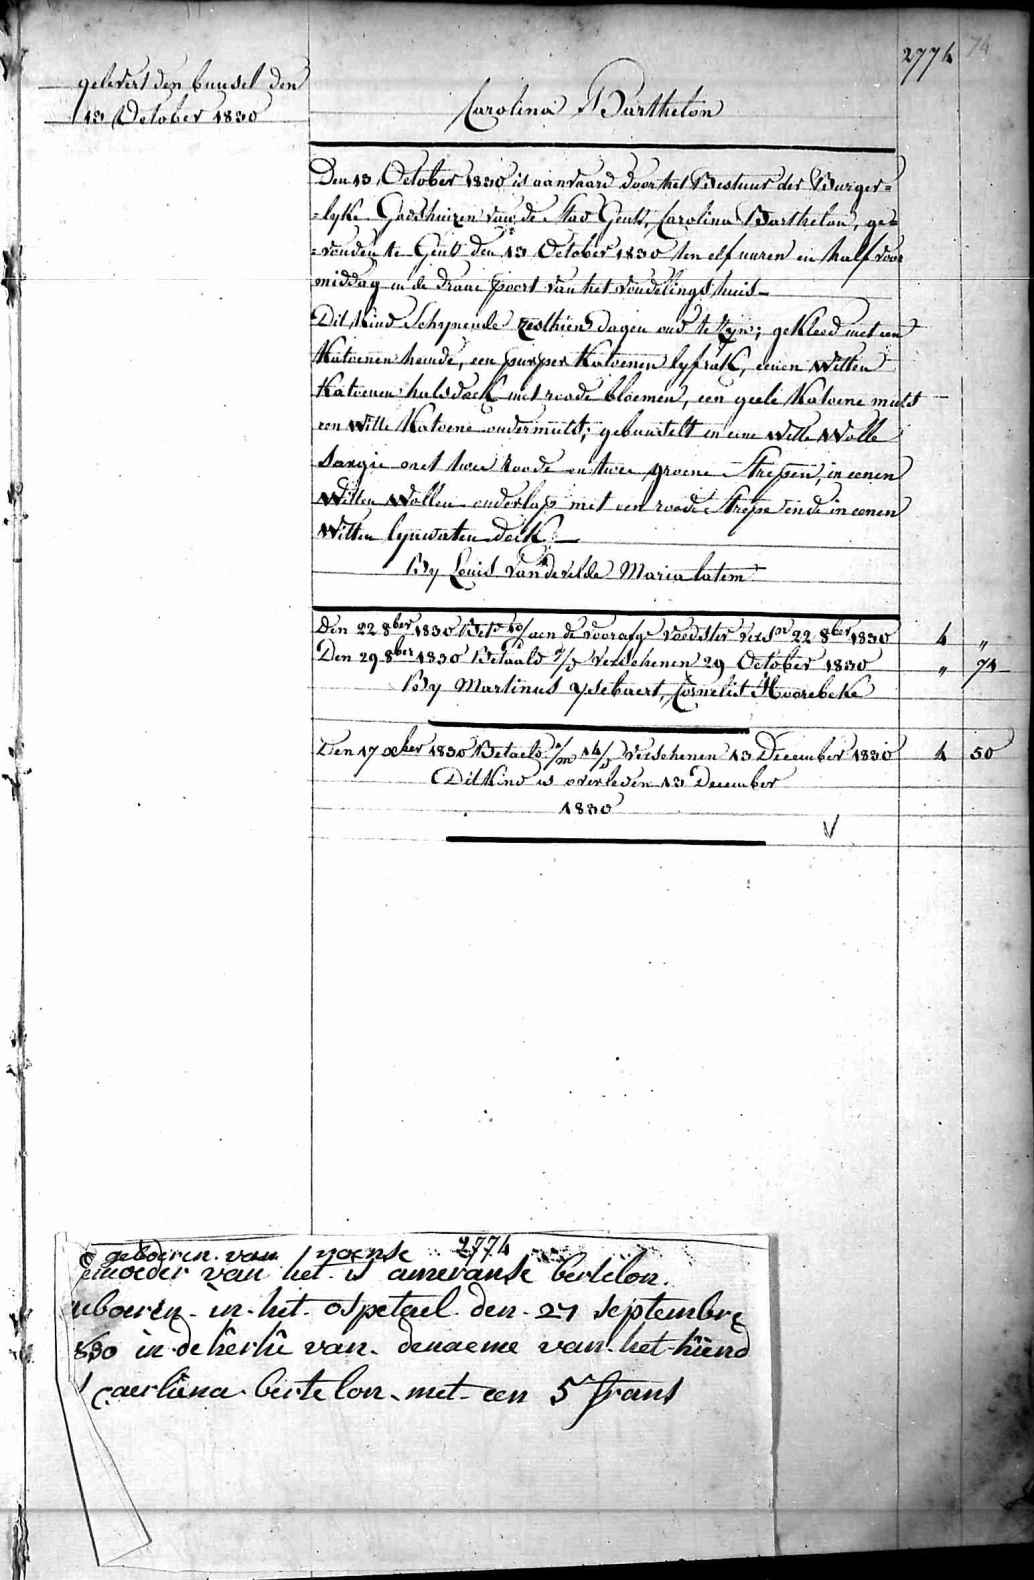 2774 74
gelevert den bunsel den
13 October 1830
Carolina Barthelon
Den 13 October 1830 is aanvaard door het Bestuur der Burger=
=lyke Godshuizen van de Stad Gent, Carolina Barthelon, ge=
=vonden te Gent den 13 October 1830 ten elf uuren en half voor
middag in de Draai poort van het vondelingshuis
Dit Kind Schynende zesthien dagen oud te zyn; gekleed met een
Katoenen hemde, een purper Katoenen lyfrok, eenen Witten
Katoenen halsdoek met roode bloemen, een geele Katoene muts
een Witte Katoene ondermuts; gebunselt in eene Witte Wolle
Sargie met twee Roode en twee groene Strepen, in eenen
Witten Wollen onderlap met een roode Strepe ende in eenen
Witten lynwaten doek
By Louis Vandevelde Maria latem
Den 22 8ber 1830 Bet. aen de voorafge voedster versn 22 8ber 1830 4 „
Den 29 8ber 1830 Betaald verschenen 29 October 1830 „ 74
By Martinus Ysebaert, Cornelis Hoorebeke
Den 17 xber 1830 Betaeld verschenen 13 December 1830 4 50
Dit Kind is overleden 13 December
1830
geboeren van 2774
moeder van het is ameranse bertelon
in het ospetael den 27 septembre
830 in de van denaeme van het kiend
caerliena bertelon met een 5 frans